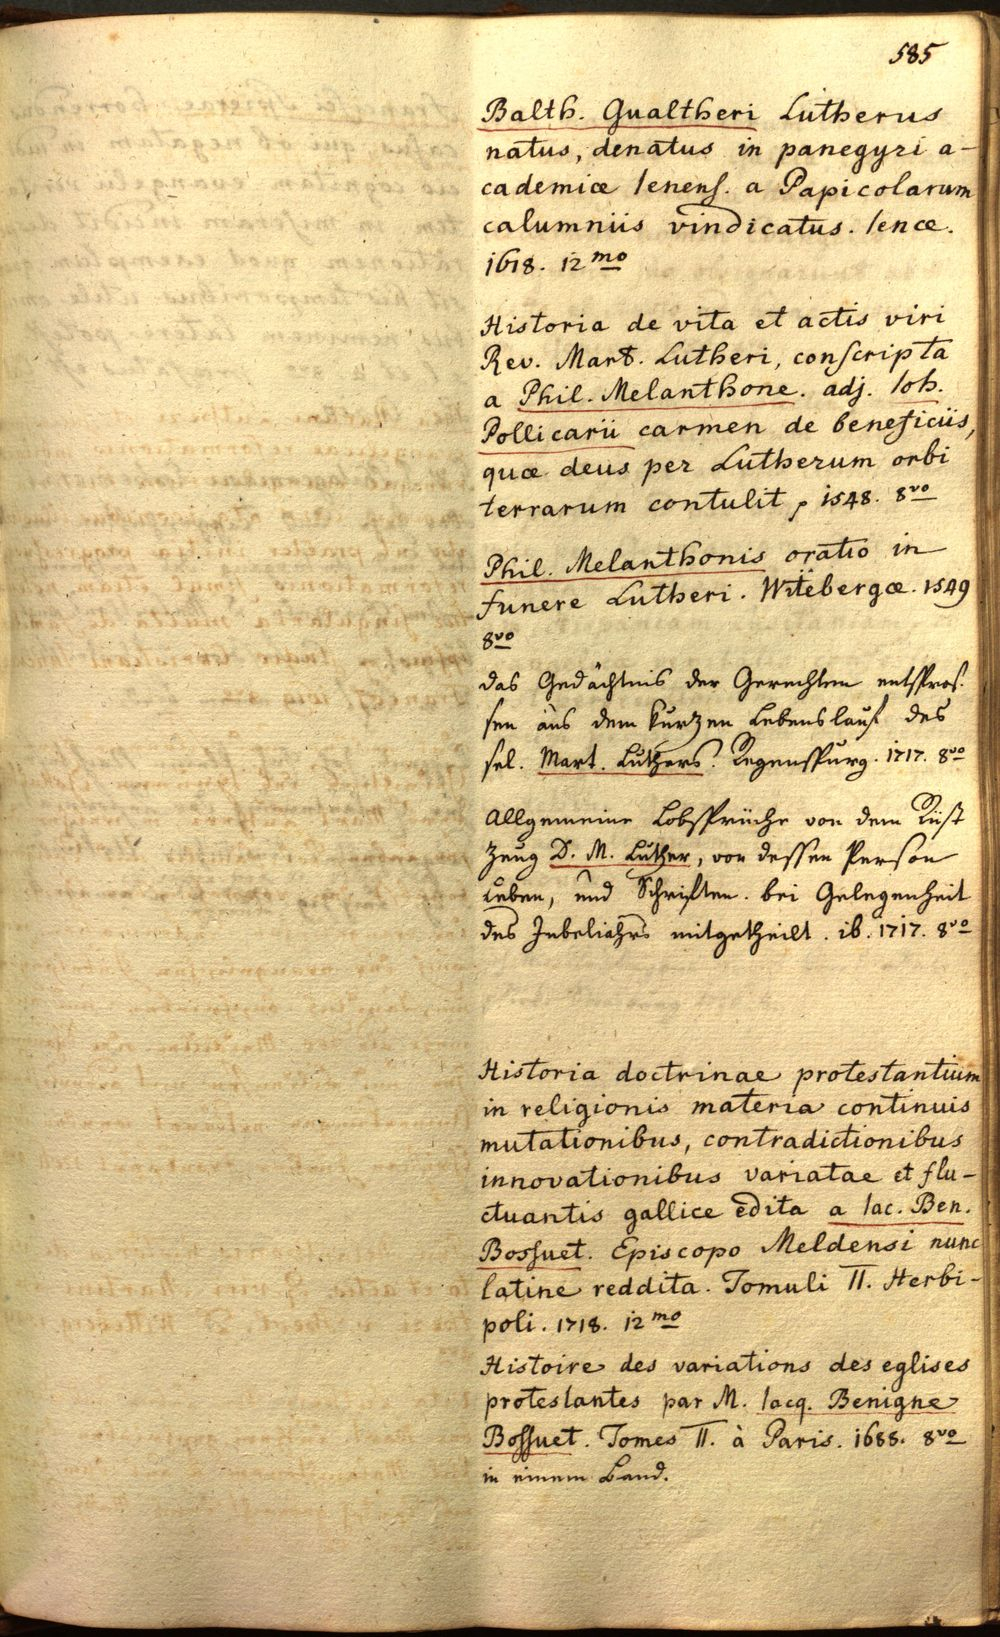 585
Balth. Gualtheri Lutherus
natus, denatus in panegyri a-
cademiæ Ienens. a Papicolarum
calumniis vindicatus. Ienæ.
1618. 12mo
Historia de vita et actis viri
Rev. Mart. Lutheri, conscripta
a Phil. Melanthone. adj. Ioh.
Pollicarii carmen de beneficiis,
quæ deus per Lutherum orbi
terrarum contulit, 1548. 8vo
Phil. Melanthonis oratio in
funere Lutheri. Witebergæ. 1549
8vo
das Gedächtnis der Gerechten entspros-
sen aus dem kurtzen Lebenslauf des
sel. Mart. Luthers. Regenspurg. 1717. 8vo
Allgemeine Lobsprüche von dem Rüst
zeug D. M. Luther, von dessen Person
Leben, und Schriften. bei Gelegenheit
des Jubeljahrs mitgetheilt. ib. 1717. 8vo
Historia doctrinae protestantium
in religionis materia continuis
mutationibus, contradictionibus
innovationibus variatae et flu-
ctuantis gallice edita a Iac. Ben.
Bossuet. Episcopo Meldensi nunc
latine reddita. Tomuli II. Herbi-
poli. 1718. 12mo
Histoire des variations des eglises
protestantes par M. Iacq. Benigne
Bossuet. Tomes II. à Paris. 1688. 8vo
in einem Band.